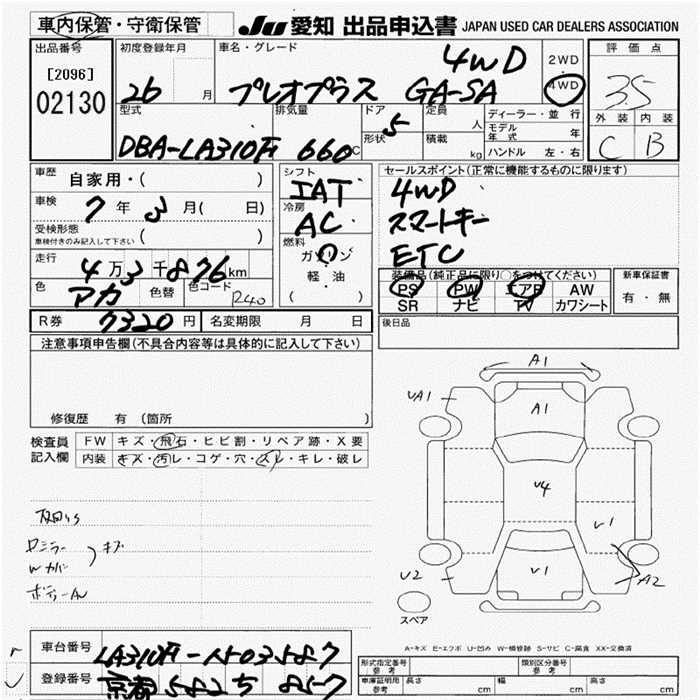 車内保管・守衛保管
JU 愛知 出品申込書 JAPAN USED CAR DEALERS ASSOCIATION
出品番号
[2096]
02130
初度登録年月
26 月
車名・グレード
4WD
プレオプラス GA-SA
2WD
・
4WD
評価点
3.5
外装 内装
C B
型式
DBA-LA310F
排気量
660 C
ドア
5
形状
定員
人
積載
kg
ディーラー・並行
モデル年式 年
ハンドル 左・右
車歴
自家用・( )
車検
7年 3月( 日)
受検形態
車検付きのみ記入して下さい ( )
走行
4万3千876km
色
アカ
色替
色コード
R40
シフト
IAT
冷房
AC
燃料
ガソリン
軽・油
( )
セールスポイント(正常に機能するものに限ります)
4WD
スマートキー
ETC
装備品(純正品に限り○をつけてください)
PS PW エアB AW
SR ナビ TV カワシート
新車保証書
有・無
R券 7320円 名変期限 月 日
後日品
注意事項申告欄(不具合内容等は具体的に記入して下さい)
修復歴 有 (箇所
検査員
記入欄
FW キズ・飛石・ヒビ割・リペア跡・X要
内装 キズ・汚レ・コゲ・穴・スレ・キレ・破レ
ミラー
Wカバー
キズ
A1
UA1
A1
U4
U1
U1
U2
A2
スペア
A-キズ E-エクボ U-凹み W-補修跡 S-サビ C-腐食 XX-交換済
車台番号
LA310F-1503587
登録番号
京都 582 5 857
形式指定番号
参考
類別区分番号
参考
車庫証明用
参考
長さ cm 幅 cm 高さ cm